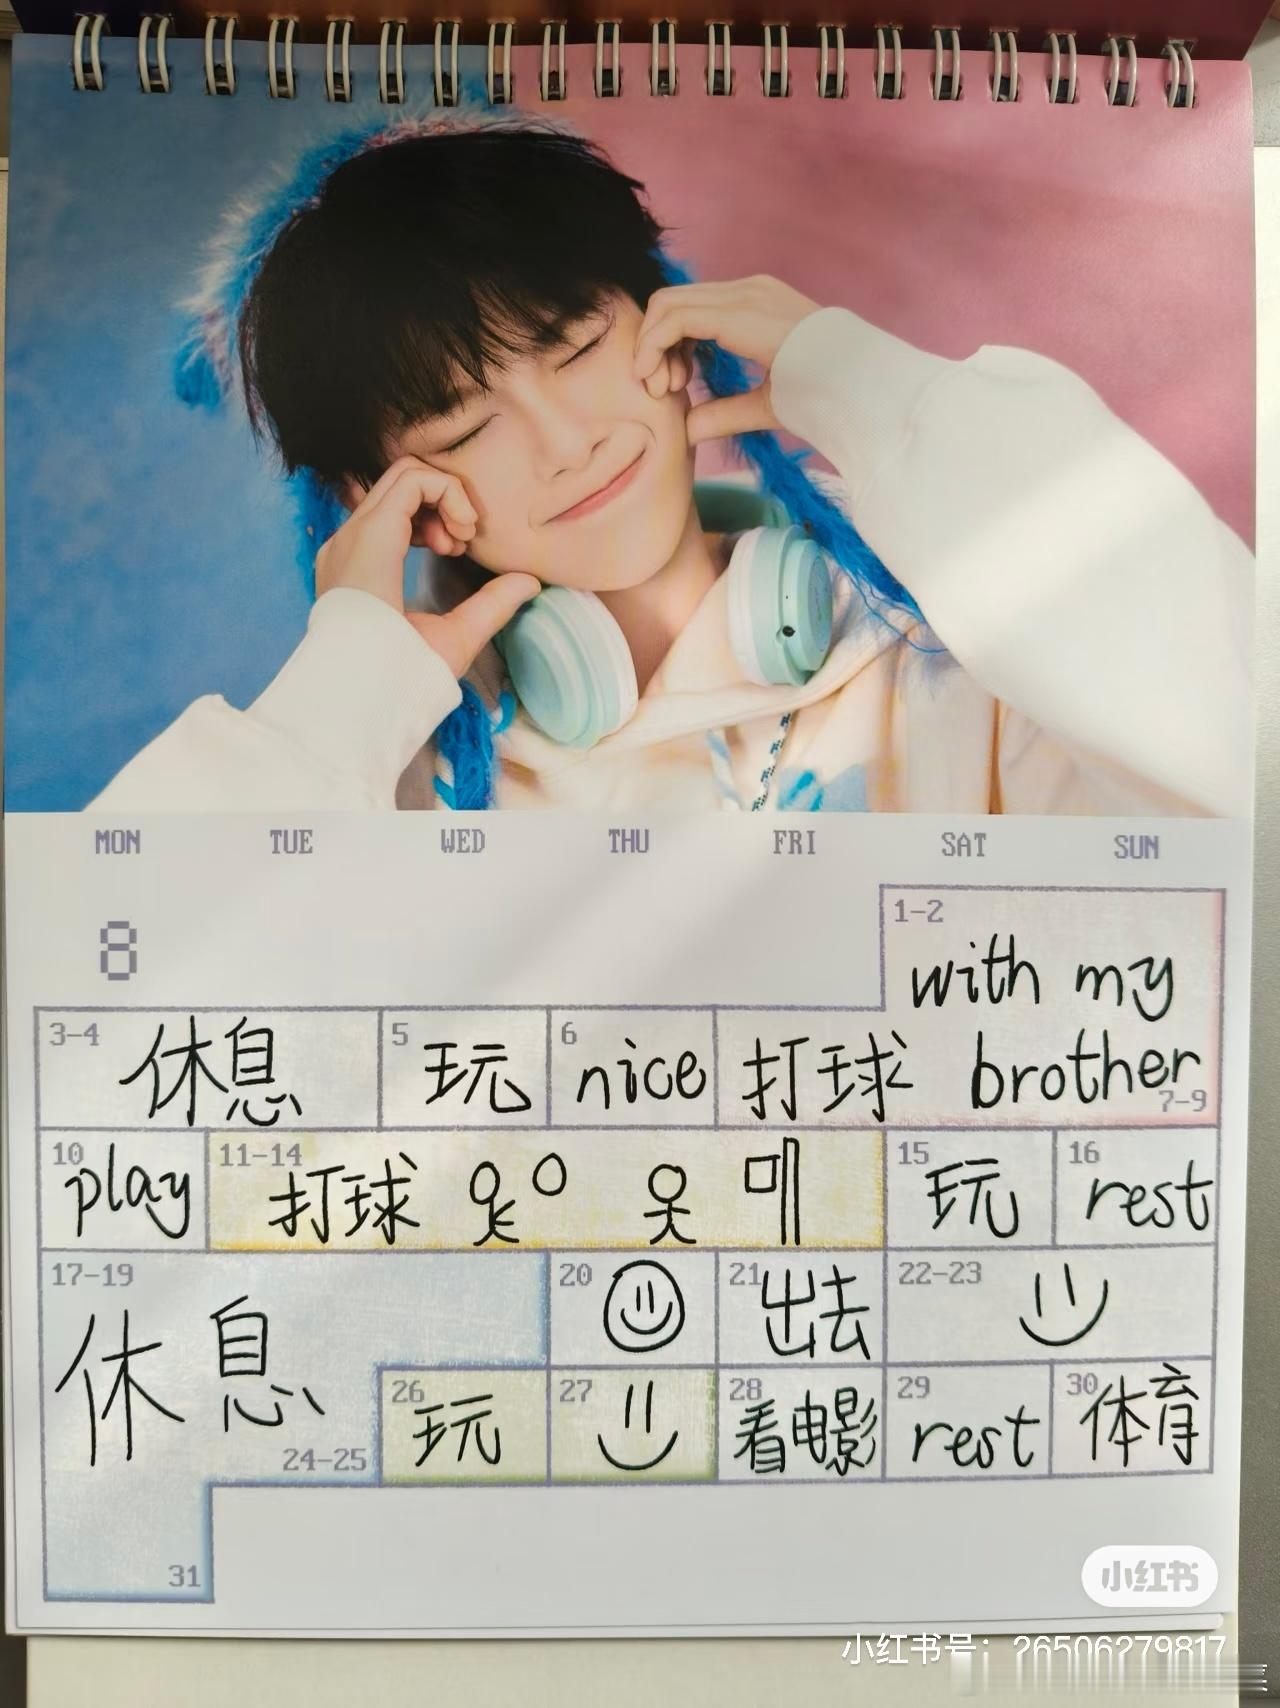 MON TUE WED THU FRI SAT SUN
8
1-2
with my
brother
3-4 休息
5 玩
6 nice
打球
7-9
10 play
11-14 打球
15 玩
16 rest
17-19
休息
20
21 出去
22-23
24-25
26 玩
27
28 看电影
29 rest
30 体育
31
小红书
小红书号: 26506279817